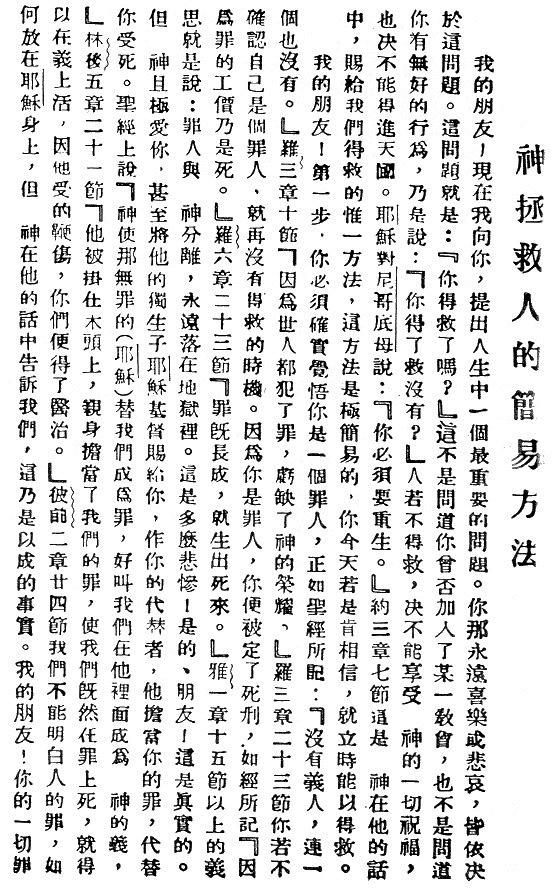 神拯救人的簡易方法
我的朋友!現在我向你,提出人生中一個最重要的問題。你那永遠喜樂或悲哀,皆依决
於這問題。這問題就是:『你得救了嗎?』這不是問道你曾否加入了某一教會,也不是問道
你有無好的行為,乃是說:『你得了救沒有?』人若不得救,决不能享受 神的一切祝福,
也决不能得進天國。耶穌對尼哥底母說:『你必須要重生。』約三章七節這是 神在他的話
中,賜給我們得救的惟一方法,這方法是極簡易的,你今天若是肯相信,就立時能以得救。
我的朋友!第一步,你必須確實覺悟你是一個罪人,正如聖經所記:『沒有義人,連一
個也沒有。』羅三章十節『因為世人都犯了罪,虧缺了神的榮耀、』羅三章二十三節你若不
確認自己是個罪人、就再沒有得救的時機。因為你是罪人,你便被定了死刑,如經所記『因
為罪的工價乃是死。』羅六章二十三節『罪旣長成,就生出死來。』雅一章十五節以上的義
思就是說:罪人與 神分離,永遠落在地獄裡。這是多麼悲慘!是的、朋友!這是眞實的。
但 神且極愛你,甚至將他的獨生子耶穌基督賜給你,作你的代替者,他擔當你的罪,代替
你受死。聖經上說『神使那無罪的(耶穌)替我們成為罪,好叫我們在他裡面成為 神的義,
』林後五章二十一節『他被掛在木頭上,親身擔當了我們的罪,使我們旣然在罪上死,就得
以在義上活,因他受的鞭傷,你們便得了醫治。』彼前二章廿四節我們不能明白人的罪,如
何放在耶穌身上,但 神在他的話中告訴我們,這乃是以成的事實。我的朋友!你的一切罪